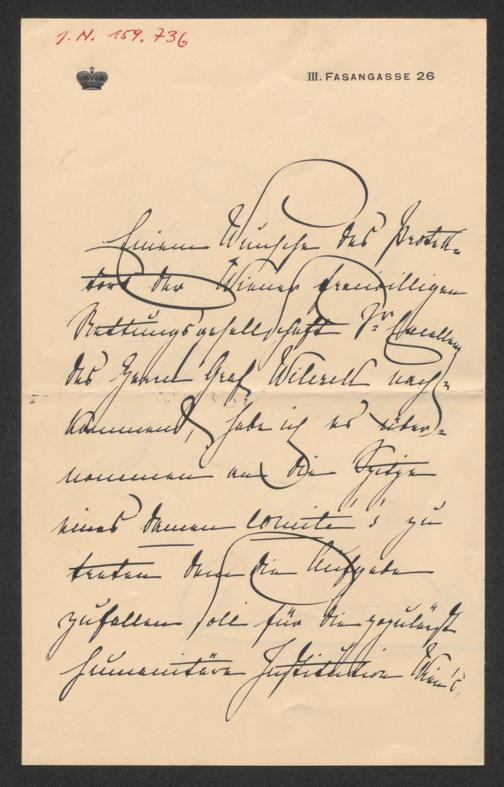 J. N. 159.736
III. FASANGASSE 26
Einem Wunsche des Protek-
tors der Wiener freiwilligen
Rettungsgesellschaft Sr Excellenz
des Herrn Graf Wilczek nach-
kommend, habe ich es über-
nommen an die Spitze
eines Damen Comité's zu
treten dem die Aufgabe
zufallen soll für die populärste
humanitäre Institution Wien's,